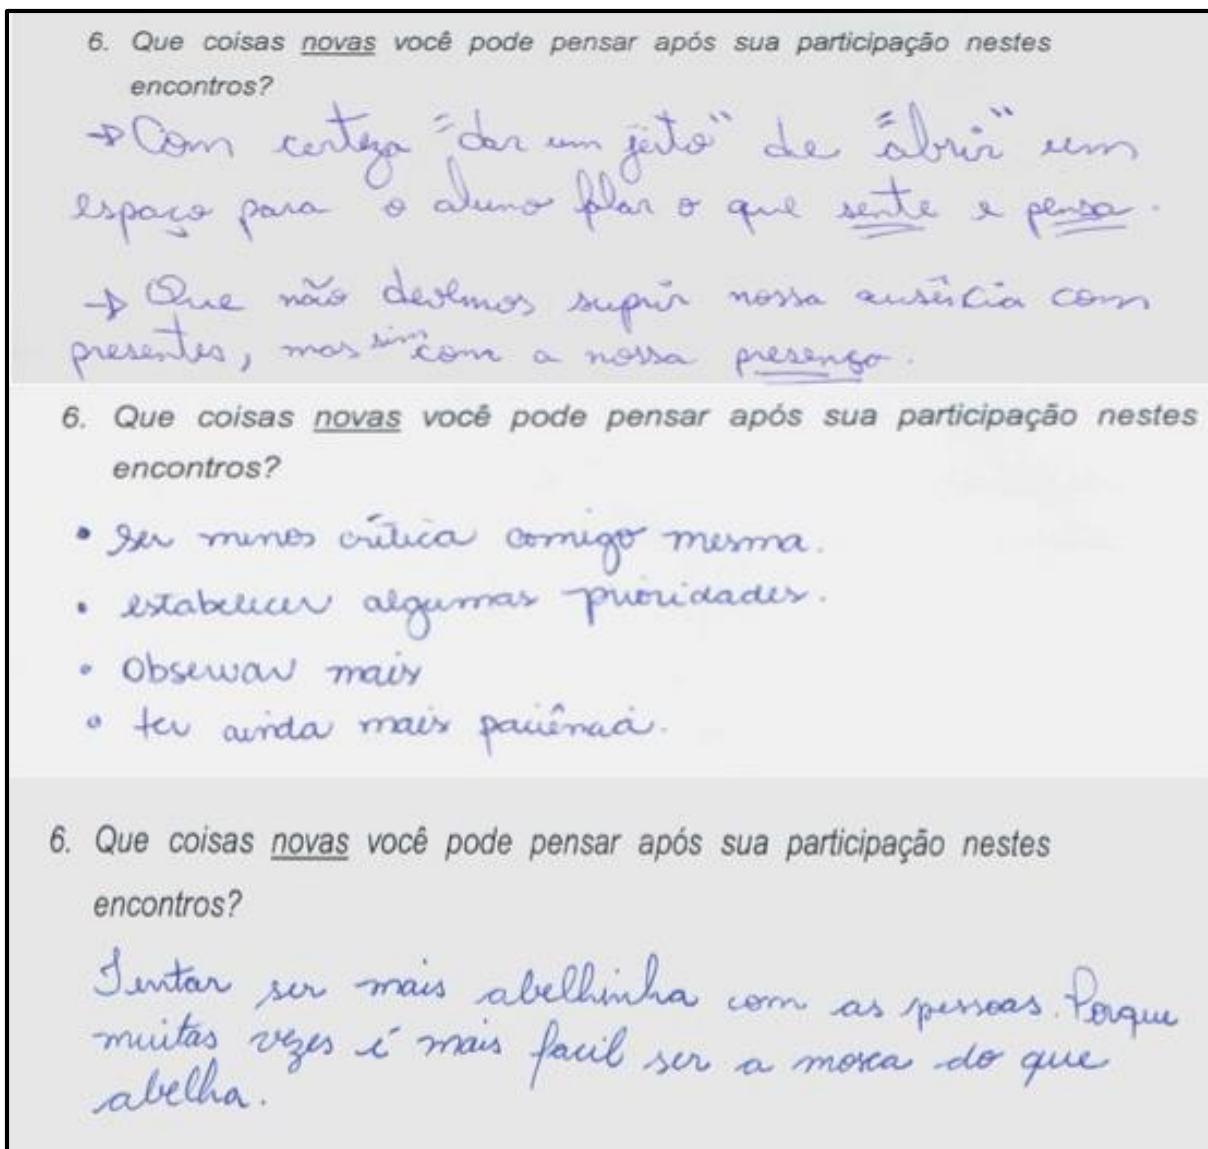 6. Que coisas novas você pode pensar após sua participação nestes
encontros?
→ Com certeza "dar um jeito" de "abrir" um
espaço para o aluno falar o que sente e pensa.
→ Que não devemos suprir nossa ausência com
presentes, mas sim com a nossa presença.
6. Que coisas novas você pode pensar após sua participação nestes
encontros?
• Ser menos crítica comigo mesma.
• estabelecer algumas prioridades.
• Observar mais
• ter ainda mais paciência.
6. Que coisas novas você pode pensar após sua participação nestes
encontros?
Tentar ser mais abelhinha com as pessoas. Porque
muitas vezes é mais facil ser a mosca do que
abelha.